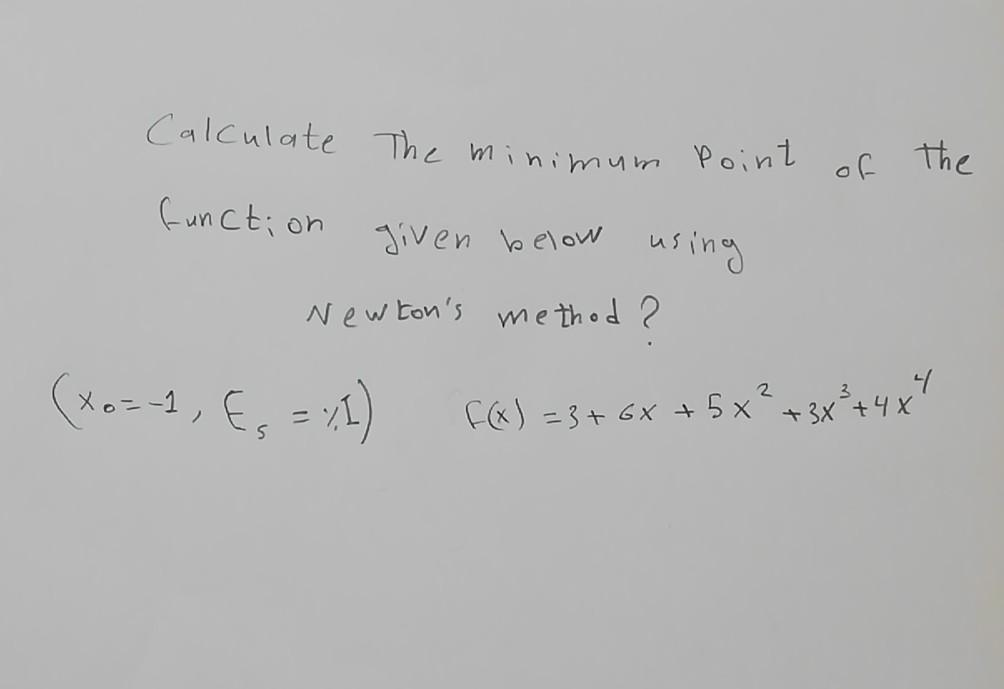 Calculate The minimum Point of the
function given below using
Newton's method?
(x₀=-1, Es = %1) f(x) = 3 + 6x + 5x² + 3x³ + 4x⁴